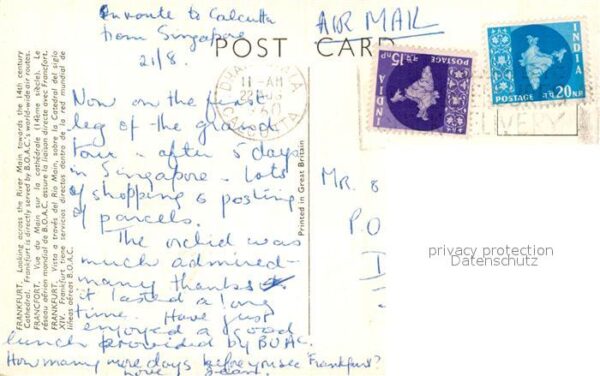 Enroute to Calcutta
from Singapore
21/8.
AIR MAIL
POST CARD
11-AM
CALCUTTA
INDIA
15 nP
POSTAGE
INDIA
POSTAGE न.पै. 20 NP
Now on the first
leg of the grand
tour - after 5 days
in Singapore - lots
of shopping & posting
of parcels.
The orchid was
much admired -
many thanks
it lasted a long
time. Have just
enjoyed a good
lunch provided by BOAC.
How many more days before you see 'Frankfurt'?
love
MR. &
P.O
privacy protection
Datenschutz
Printed in Great Britain
FRANKFURT. Looking across the River Main towards the 14th century
Cathedral. Frankfurt is directly served by B.O.A.C.'s world-wide air routes.
FRANCFORT. Vue du Main sur la cathédrale (14ème siècle). Le
réseau aérien mondial de B.O.A.C. assure la liaison directe avec Francfort.
FRANKFURT. Vista a través del Río Main, sobre la Catedral del siglo
XIV. Frankfurt tiene servicios directos dentro de la red mundial de
líneas aéreas B.O.A.C.